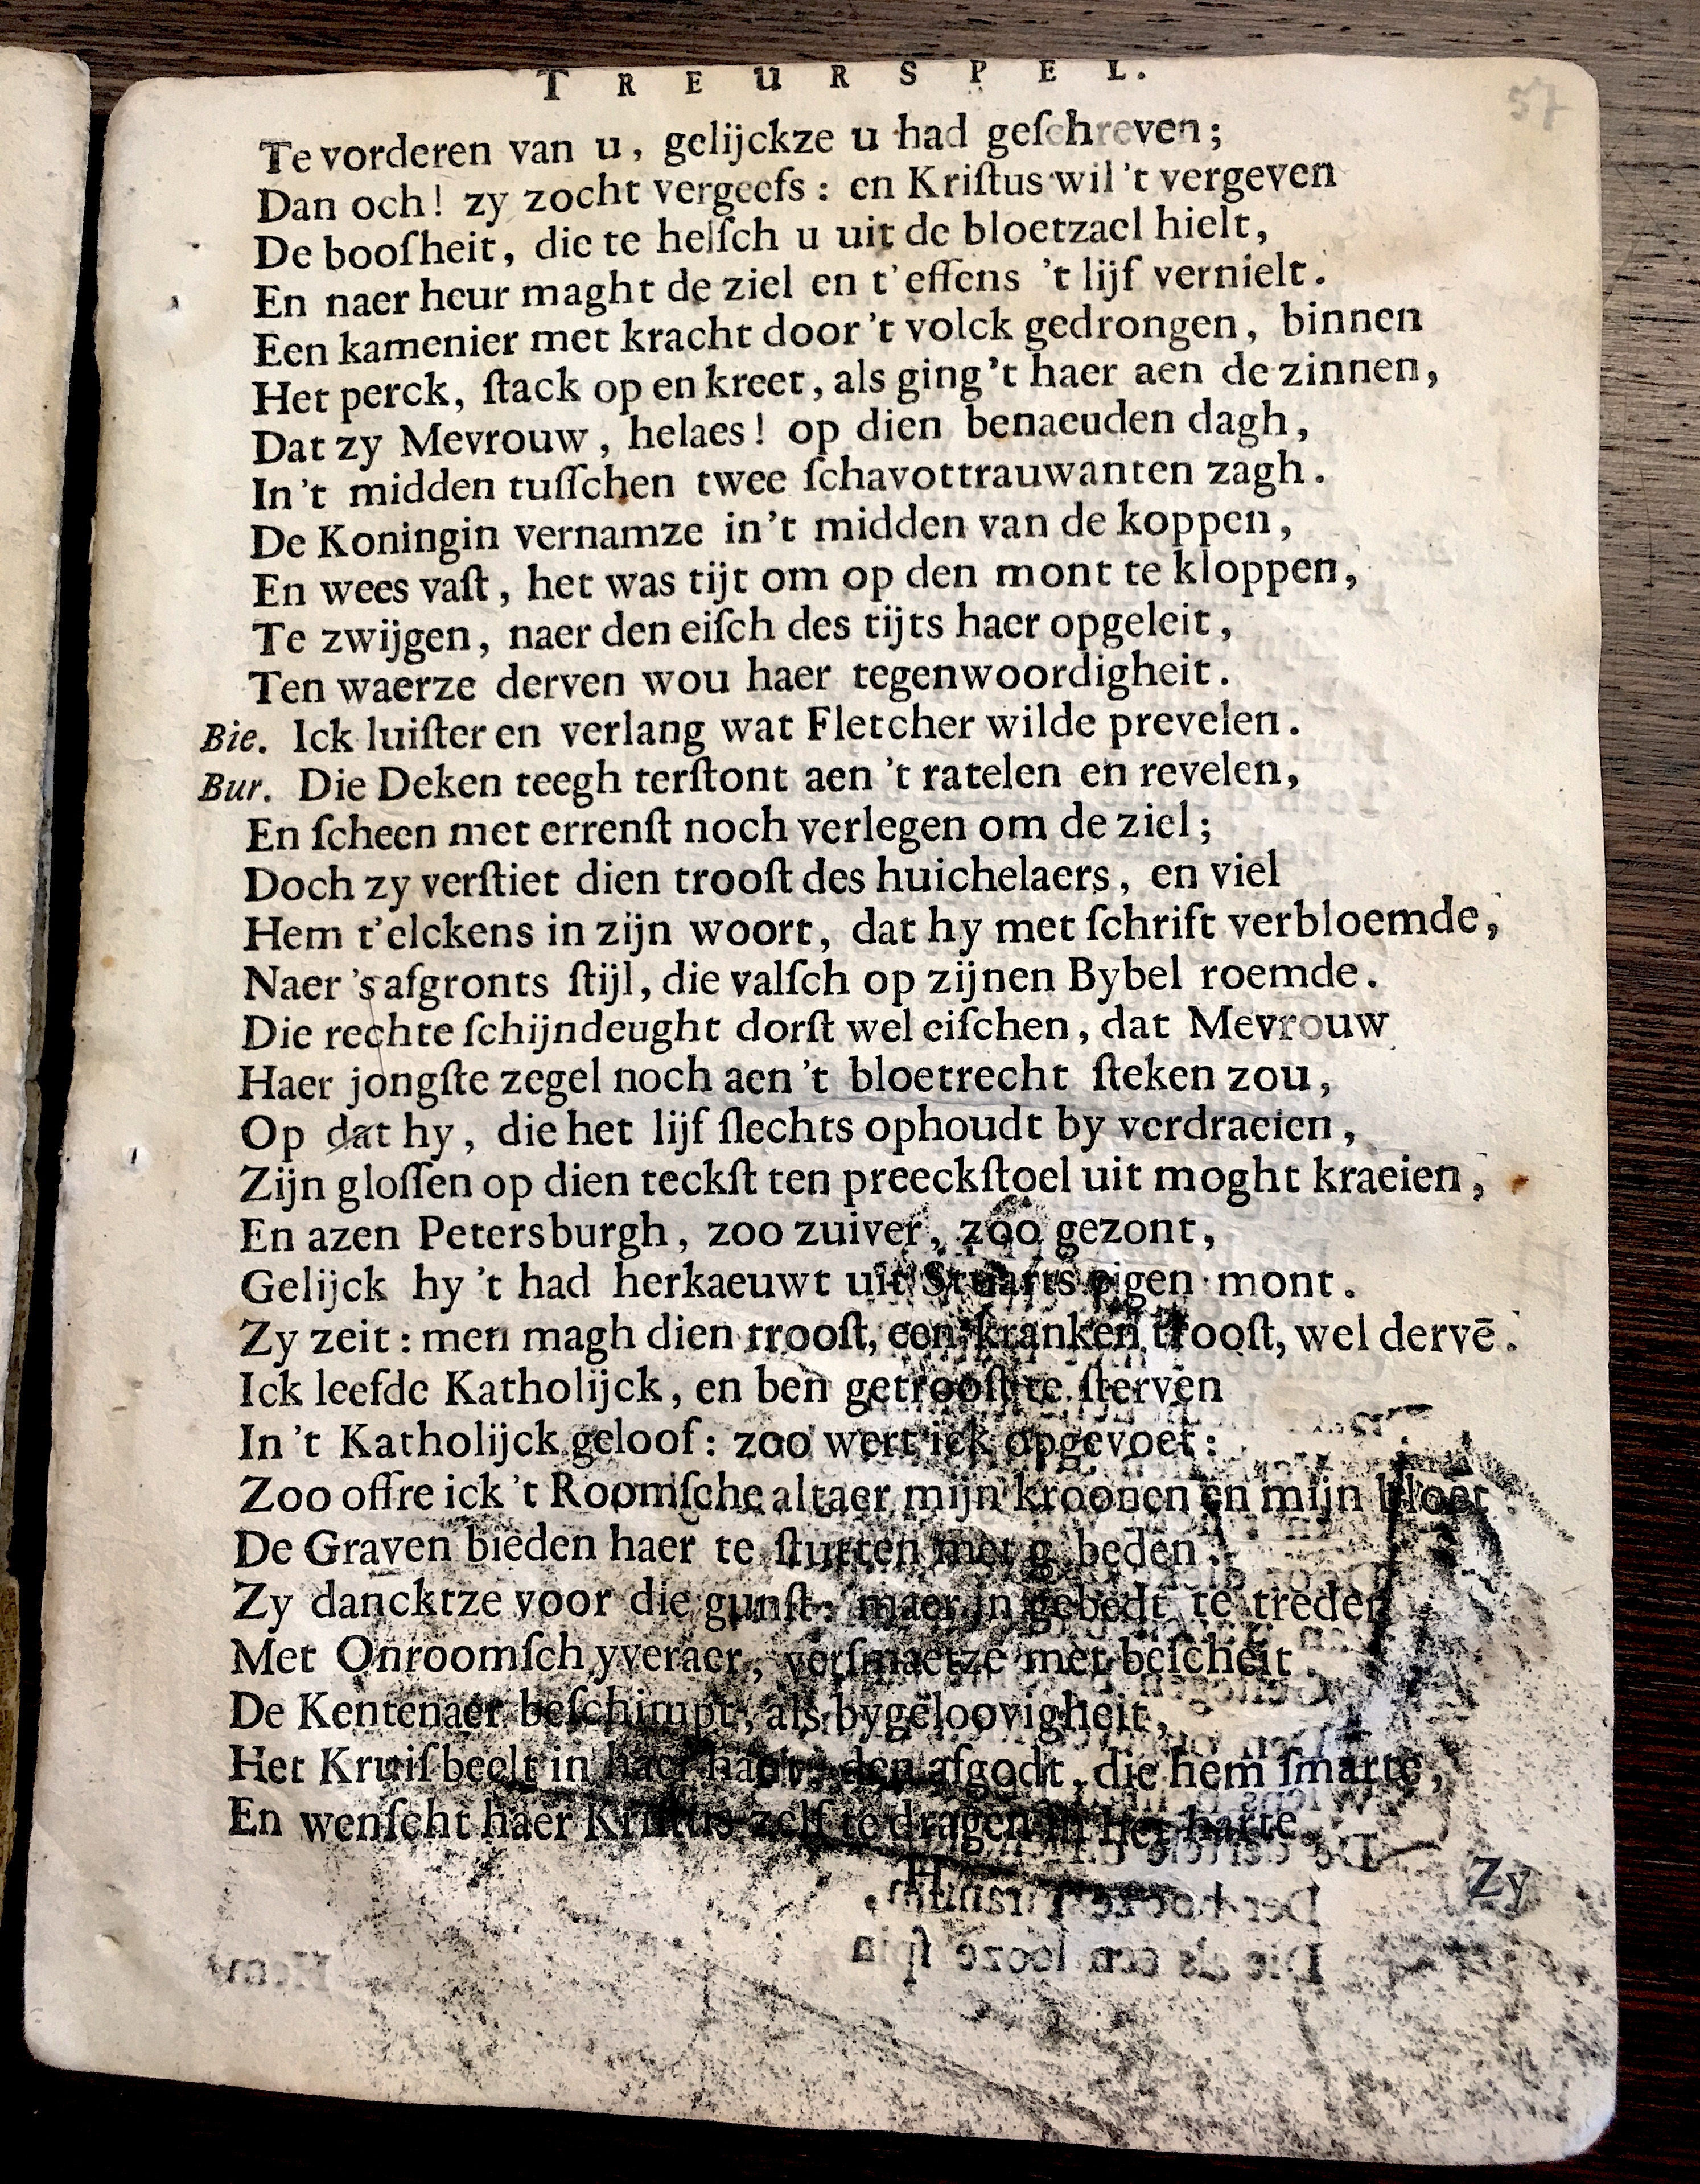 TREURSPEL.
57
Te vorderen van u, gelijckze u had geſchreven;
Dan och! zy zocht vergeefs: en Kriſtus wil 't vergeven
De boosheit, die te helſch u uit de bloetzael hielt,
En naer heur maght de ziel en t'effens 't lijf vernielt.
Een kamenier met kracht door 't volck gedrongen, binnen
Het perck, ſtack op en kreet, als ging 't haer aen de zinnen,
Dat zy Mevrouw, helaes! op dien benaeuden dagh,
In 't midden tuſſchen twee ſchavottrauwanten zagh.
De Koningin vernamze in 't midden van de koppen,
En wees vaſt, het was tijt om op den mont te kloppen,
Te zwijgen, naer den eiſch des tijts haer opgeleit,
Ten waerze derven wou haer tegenwoordigheit.
Bie. Ick luiſter en verlang wat Fletcher wilde prevelen.
Bur. Die Deken teegh terſtont aen 't ratelen en revelen,
En ſcheen met errenſt noch verlegen om de ziel;
Doch zy verſtiet dien trooſt des huichelaers, en viel
Hem t'elckens in zijn woort, dat hy met ſchrift verbloemde,
Naer 's afgronts ſtijl, die valſch op zijnen Bybel roemde.
Die rechte ſchijndeught dorſt wel eiſchen, dat Mevrouw
Haer jongſte zegel noch aen 't bloetrecht ſteken zou,
Op dat hy, die het lijf ſlechts ophoudt by verdraeien,
Zijn gloſſen op dien teckſt ten preeckſtoel uit moght kraeien,
En azen Petersburgh, zoo zuiver, zoo gezont,
Gelijck hy 't had herkaeuwt uit Stuarts eigen mont.
Zy zeit: men magh dien trooſt, een kranken trooſt, wel dervē.
Ick leefde Katholijck, en ben getrooſt te ſterven
In 't Katholijck geloof: zoo wert ick opgevoet:
Zoo offre ick 't Roomſche altaer mijn kroonen en mijn bloet.
De Graven bieden haer te ſtutten met gebeden.
Zy dancktze voor die gunſt: maer in gebedt te treden
Met Onroomſch yveraer, verſmaetze met beſcheit.
De Kentenaer beſchimpt, als bygeloovigheit,
Het Kruiſbeelt in haer hant, den afgodt, die hem ſmarte,
En wenſcht haer Kriſtus zelf te dragen in het harte.
H
Zy